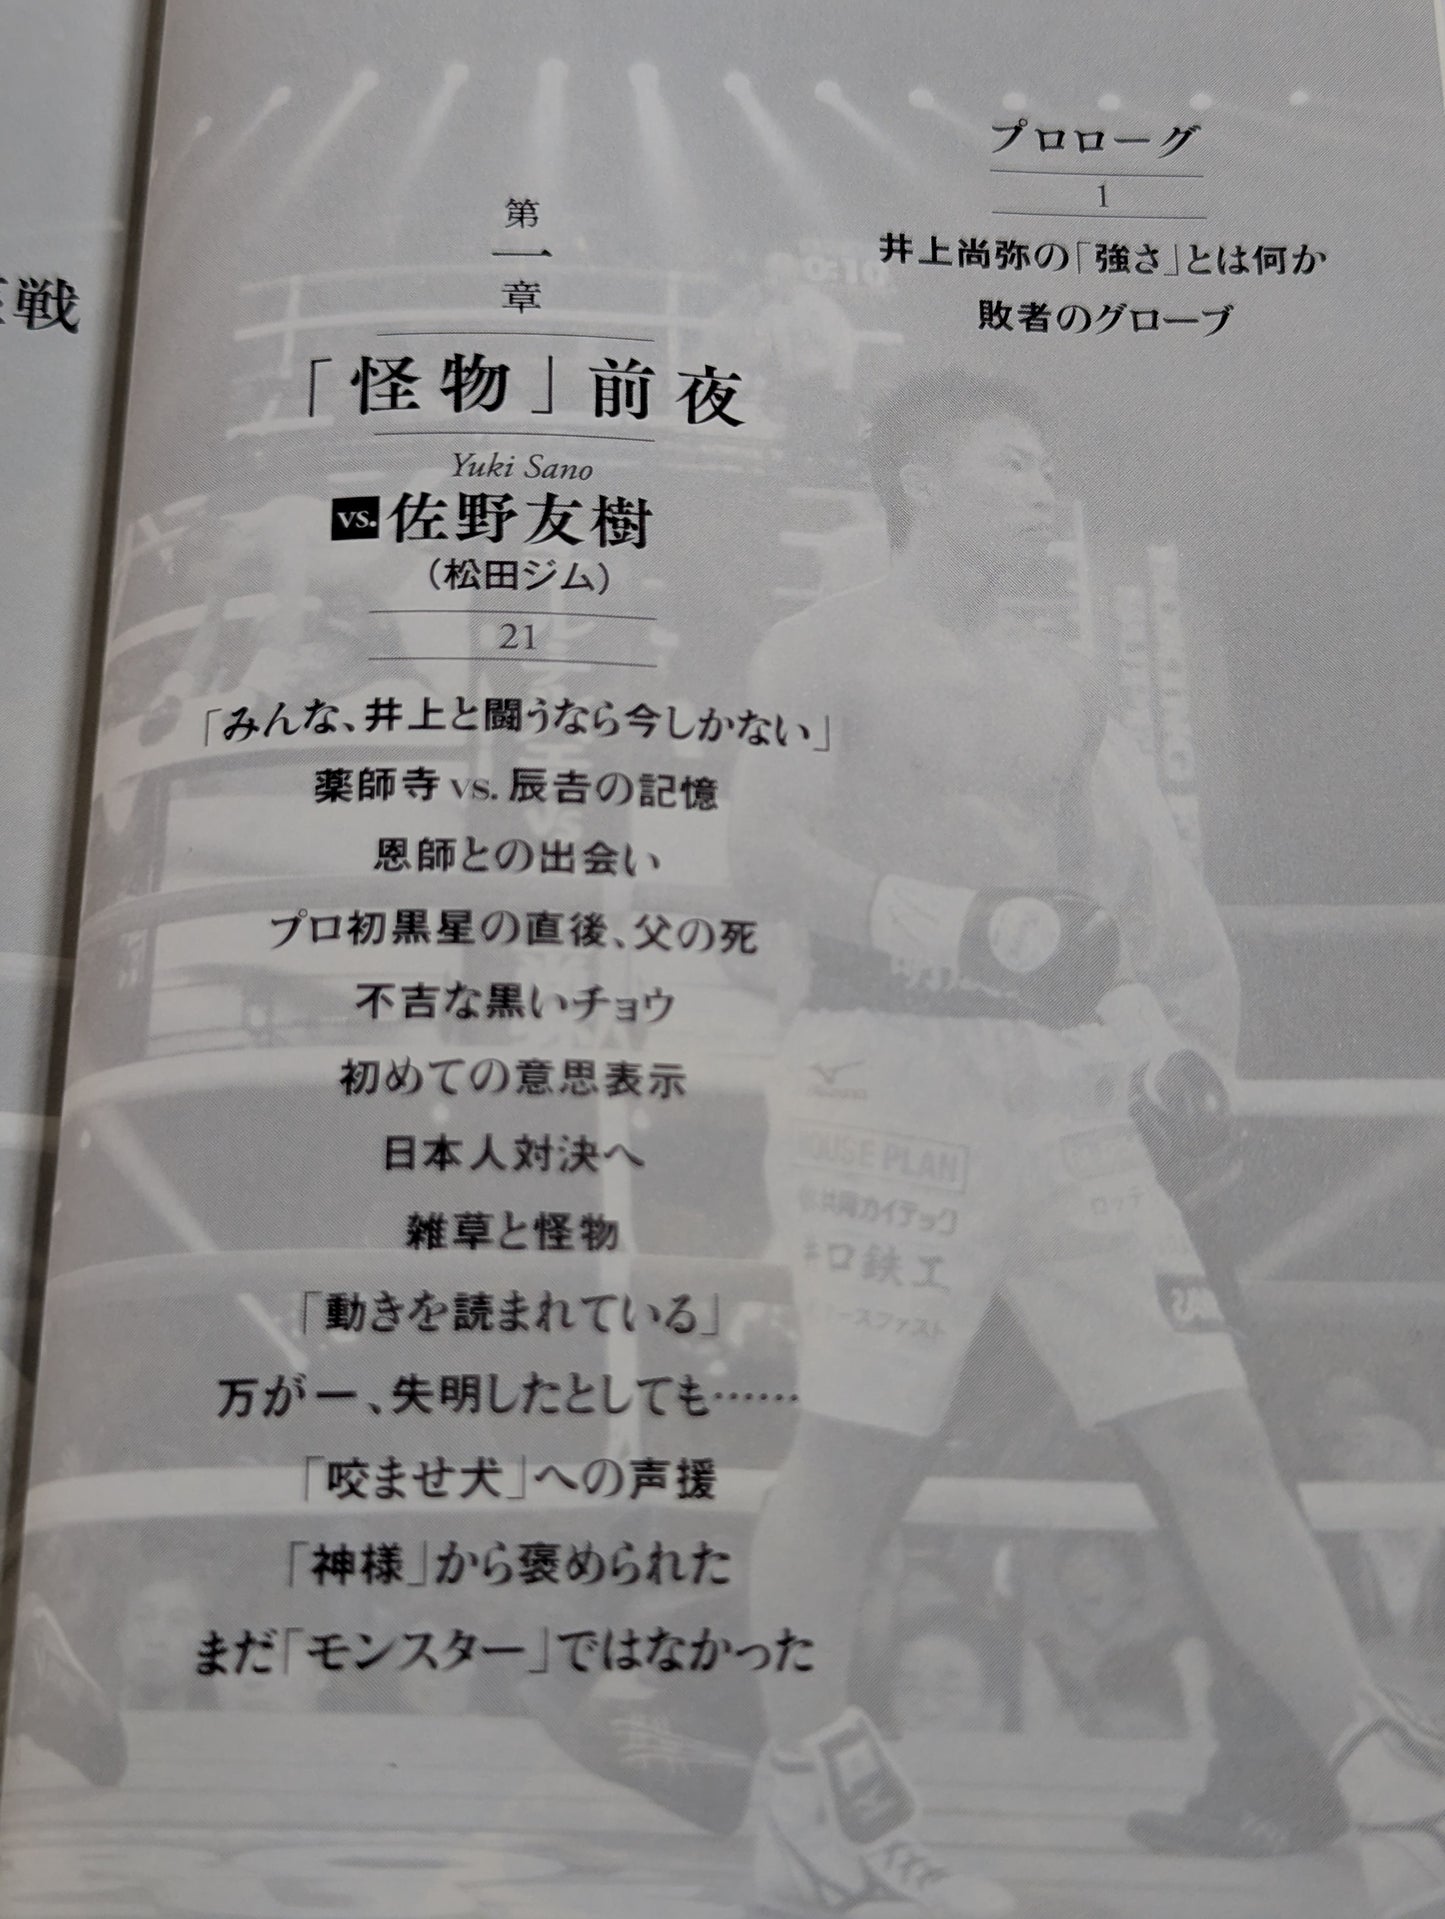 プロローグ
1
井上尚弥の「強さ」とは何か
敗者のグローブ
第
一
章
「怪物」前夜
Yuki Sano
vs.佐野友樹
（松田ジム）
21
「みんな、井上と闘うなら今しかない」
薬師寺 vs. 辰𠮷の記憶
恩師との出会い
プロ初黒星の直後、父の死
不吉な黒いチョウ
初めての意思表示
日本人対決へ
雑草と怪物
「動きを読まれている」
万が一、失明したとしても……
「咬ませ犬」への声援
「神様」から褒められた
まだ「モンスター」ではなかった
戦
HOUSE PLAN
ロッテ